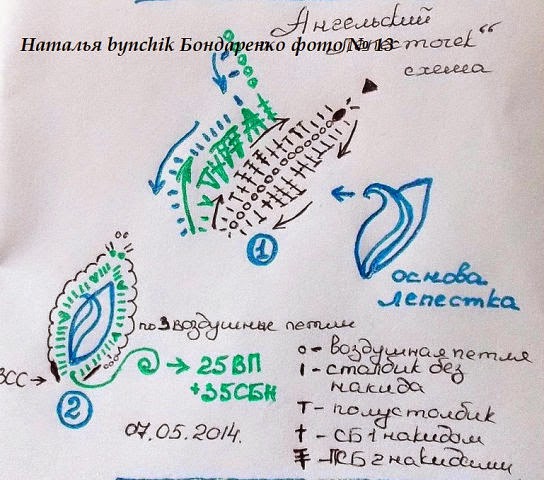 „Ангельский
лепесточек“
схема
Наталья bynchik Бондаренко фото № 13
1
основа
лепестка
по 3 воздушные петли
→ 25 ВП
+ 35 СБН
ЗСС →
2
07.05.2014.
о - воздушная петля
ı - столбик без
накида
т - полустолбик
† - СБ 1 накидом
СБ 2 накидами